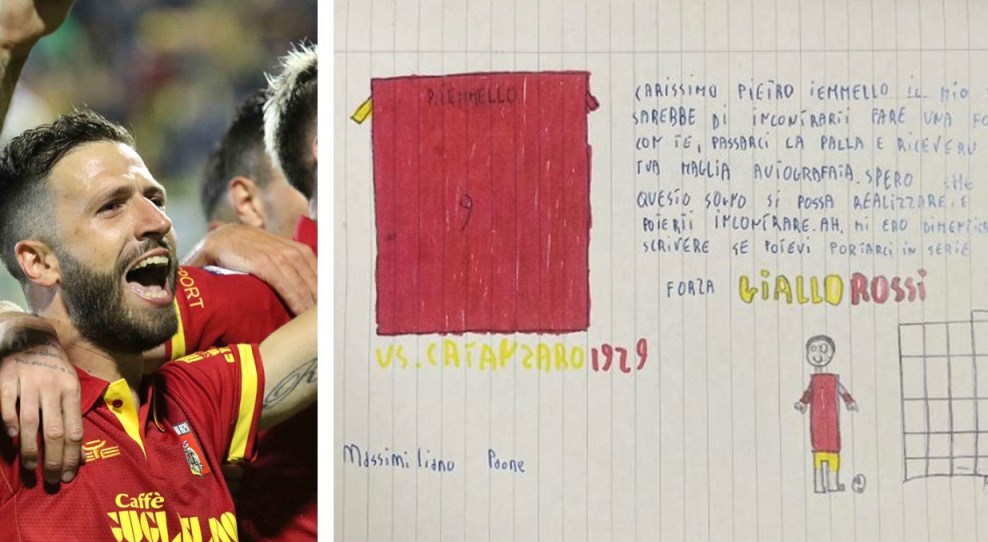 PORT
Caffè
GUGLIELMO
P.IEMMELLO
9
US. CATANZARO 1929
CARISSIMO PIETRO IEMMELLO IL MIO
SAREBBE DI INCONTRARTI FARE UNA FO
CON TE, PASSARCI LA PALLA E RICEVERE
TUA MAGLIA AUTOGRAFATA. SPERO CHE
QUESTO SOGNO SI POSSA REALIZZARE E
POTERTI INCONTRARE. AH, MI ERO DIMENTICA
SCRIVERE SE POTEVI PORTARCI IN SERIE
FORZA GIALLOROSSI
Massimiliano Paone